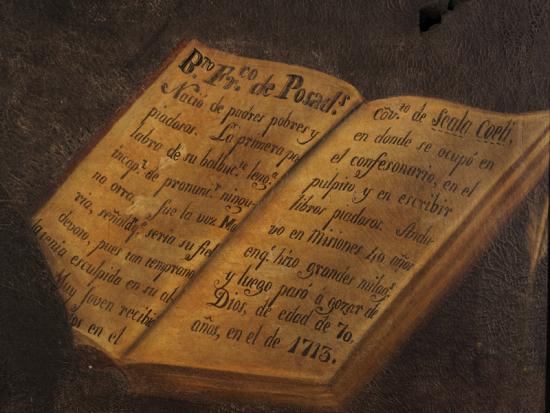 B.to Fr.co de Posad.s
Nació de padres pobres y
piadosos. La primera pa
labra de su balbuc.te leng.a
incap.z de pronunc.r ningu-
na otra, fue la voz Ma
ria, señal seria su fiel
devoto, pues tan temprano
la tenia esculpida en su al
Muy joven recibió
en el
Conv.to de Scala Coeli,
en donde se ocupó en
el confesonario, en el
pulpito, y en escribir
libros piadosos. Andu
vo en Misiones 40 años
enq.e hizo grandes milag.s
y luego pasó á gozar de
Dios, de edad de 70.
años, en el de 1713.